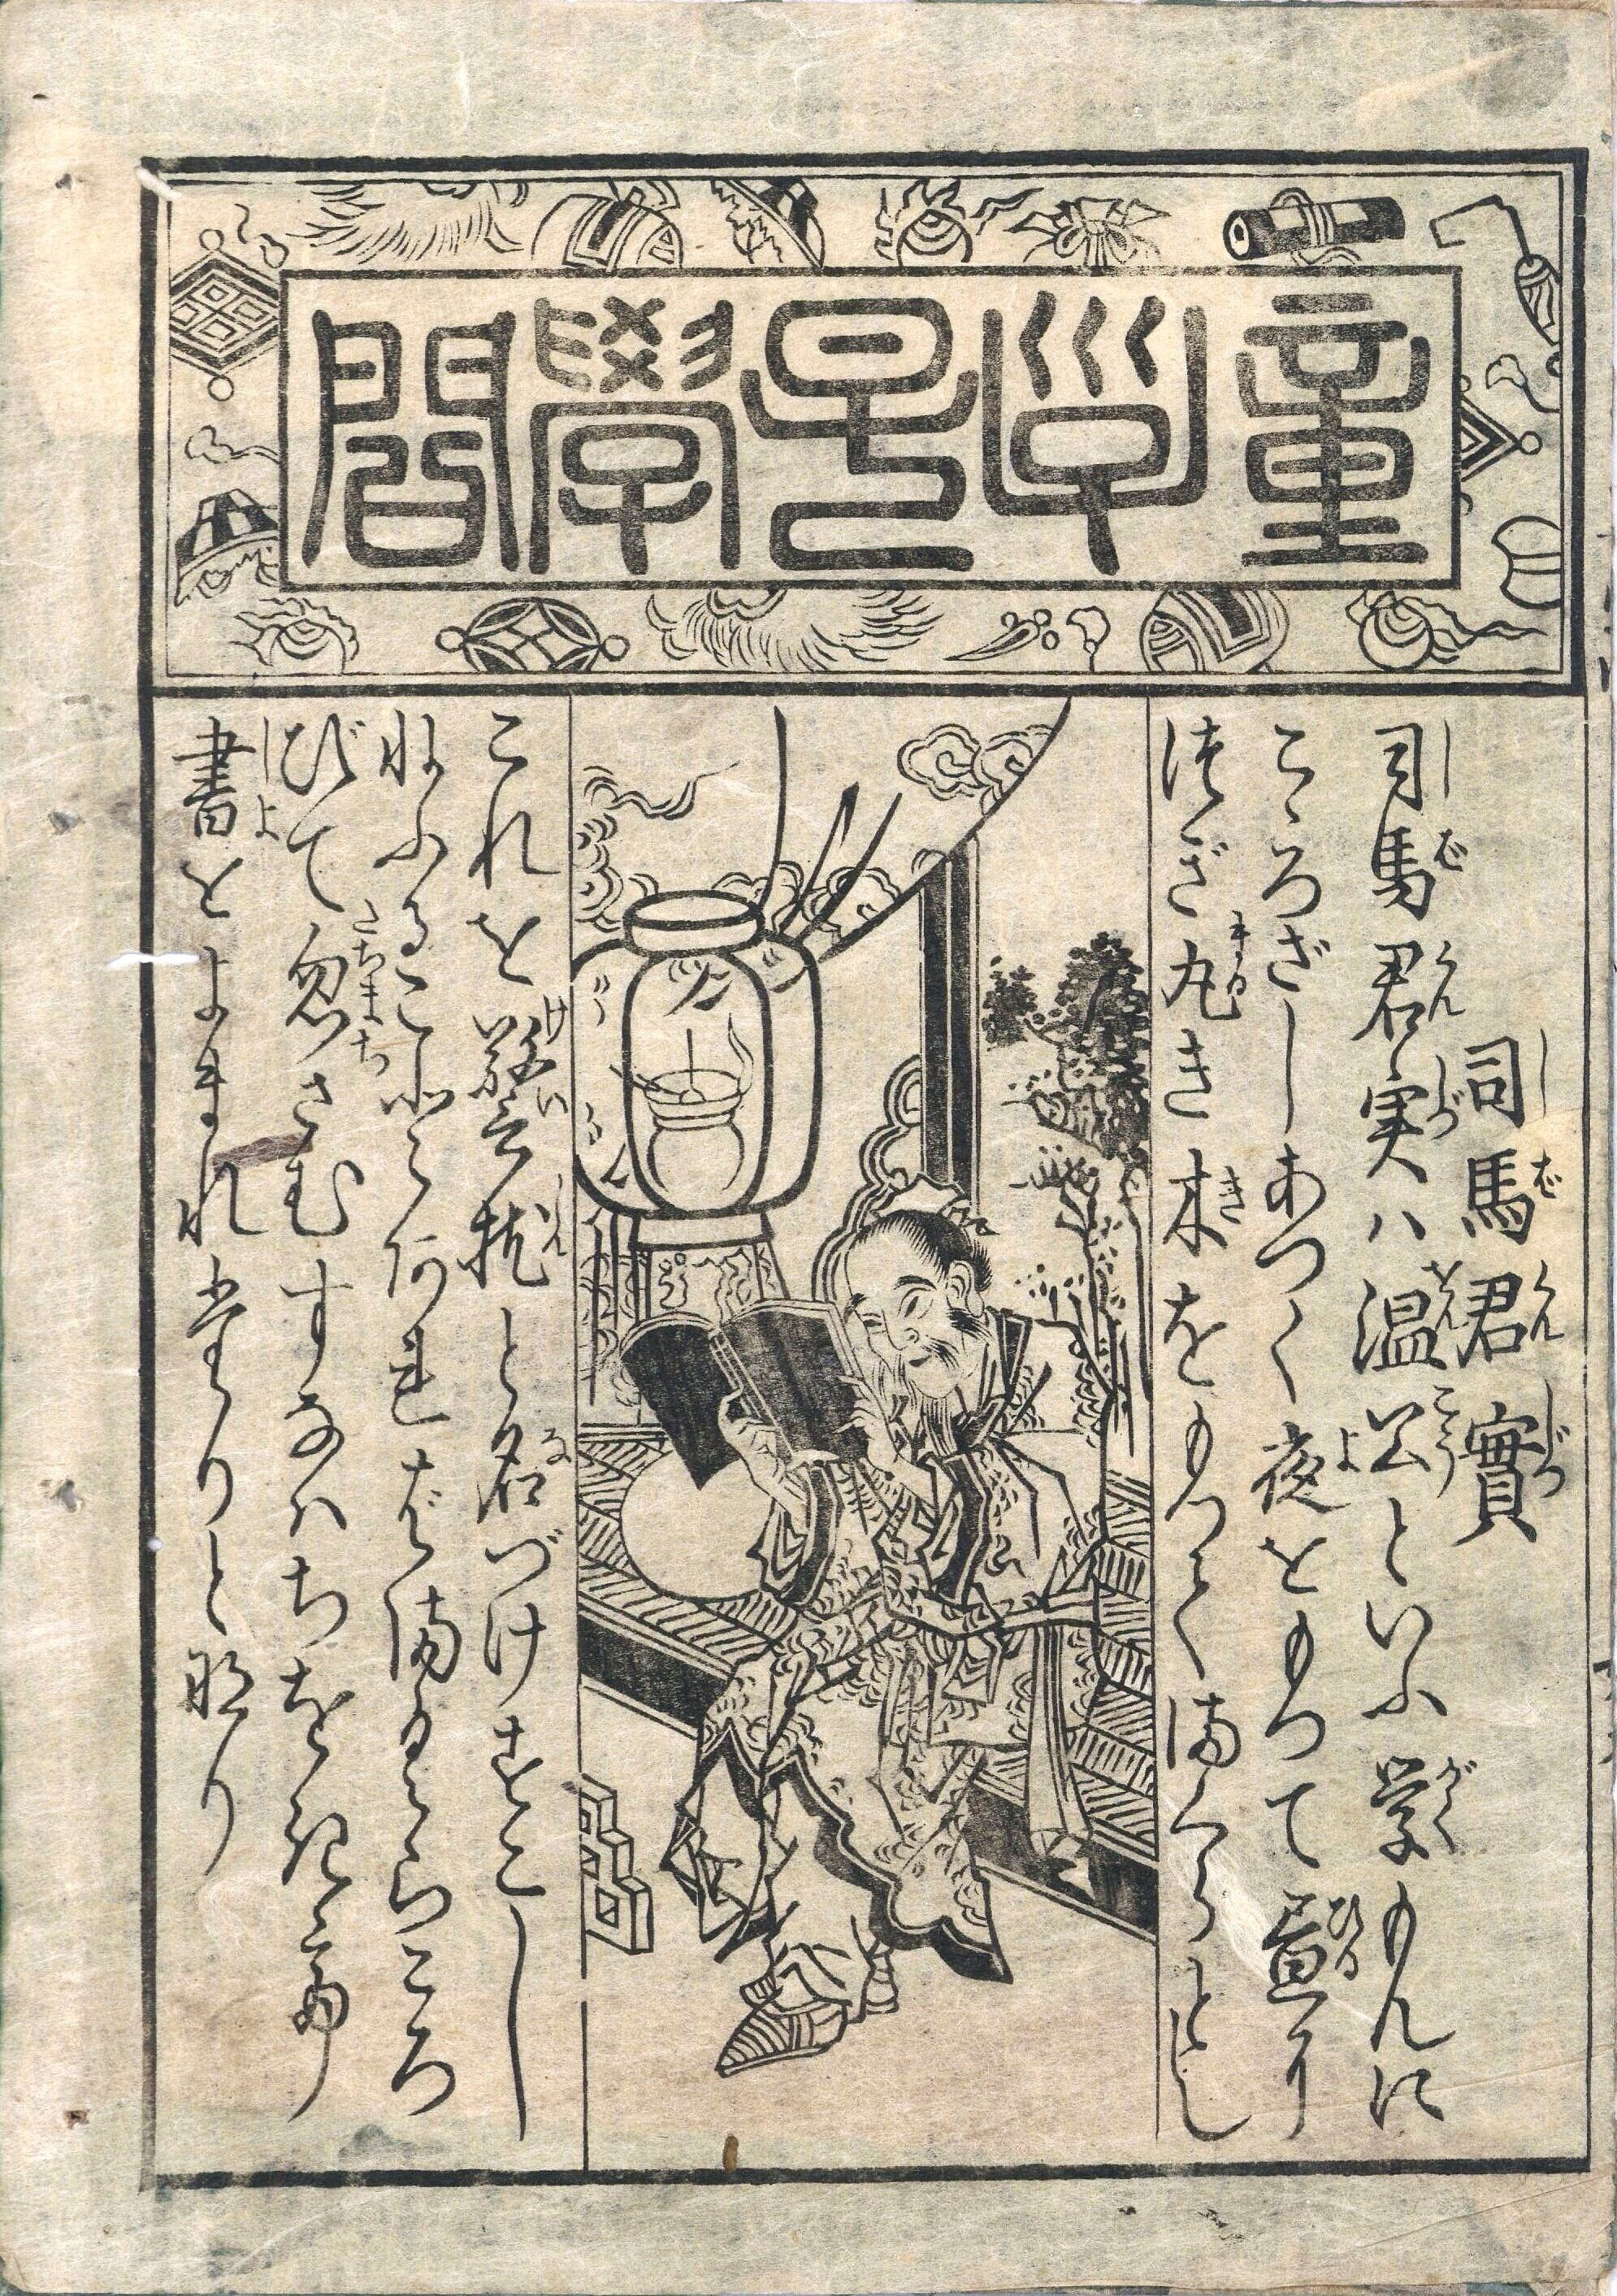 童子早學問
司馬君實
司馬君実ハ温公といふ学もんに
こゝろざしあつく夜をもつて昼に
つぎ丸き木をもつてまくらとし
これを警枕と名づけすこし
ねふることあればまくらころ
びて忽さむすなハちおきて
書をよまれたりと也